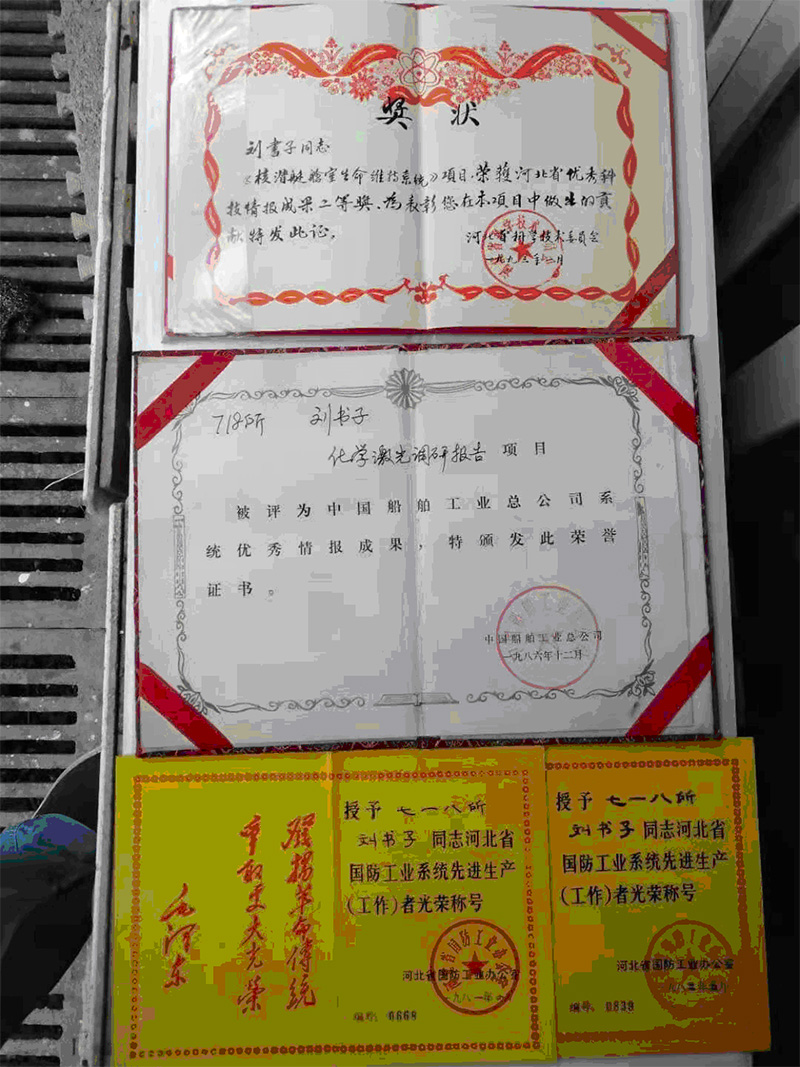 奖状
刘書子同志
《核潜艇艙室生命维持系统》项目，荣獲河北省优秀科
技情报成果二等奖、为表彰您在本项目中做出的贡
献特发此证。
河北省科学技术委员会
一九九三年二月
718所 刘书子
化学激光调研报告 项目
被评为中国船舶工业总公司系
统优秀情报成果，特颁发此荣誉
证书。
中国船舶工业总公司
一九八六年十二月
發揚革命傳統
爭取更大光榮
毛泽东
授予 七一八所
刘书子 同志河北省
国防工业系统先进生产
(工作)者光荣称号
河北省国防工业办公室
一九八一年
编号: 0668
授予 七一八所
刘书子 同志河北省
国防工业系统先进生产
(工作)者光荣称号
河北省国防工业办公室
编号: 0839